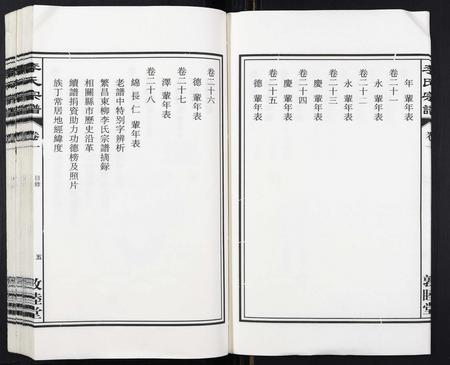 李氏宗譜
卷一
敦睦堂
年 輩年表
卷二十一
永 輩年表
卷二十二
永 輩年表
卷二十三
慶 輩年表
卷二十四
慶 輩年表
卷二十五
德 輩年表
卷二十六
德 輩年表
卷二十七
澤 輩年表
卷二十八
綿長仁 輩年表
老譜中特別字辨析
繁昌東柳李氏宗譜摘録
相關縣市歷史沿革
續譜捐資助力功德榜及照片
族丁常居地經緯度
李氏宗譜
卷一
目錄
五
敦睦堂